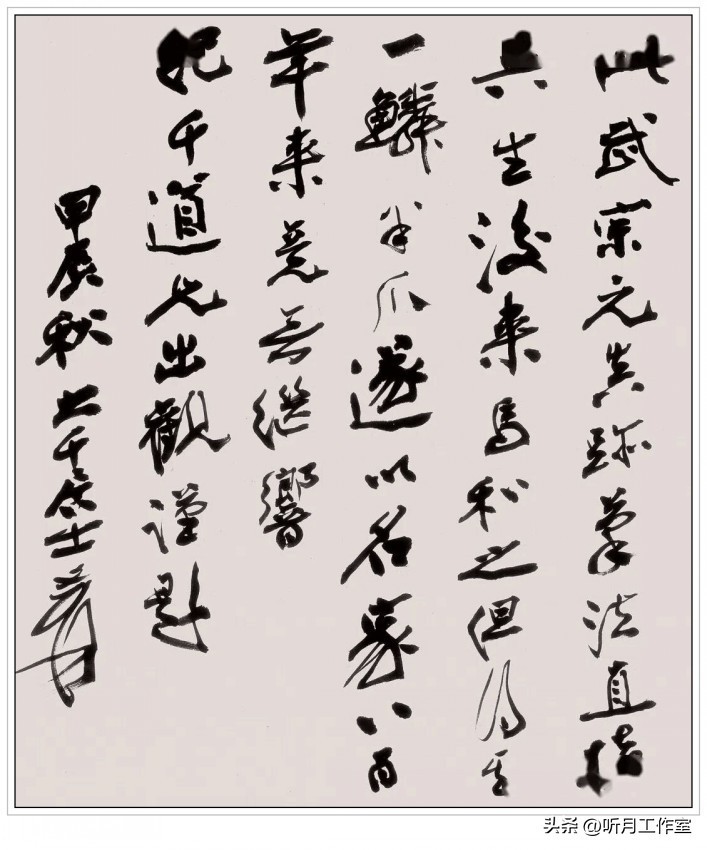 此武宗元真跡筆法直接
吳生後來馬和之但得其
一鱗半爪遂以名家八百
年來竟無繼響
紀千道兄出觀謹題
甲辰秋大千居士爰
头条 @听月工作室